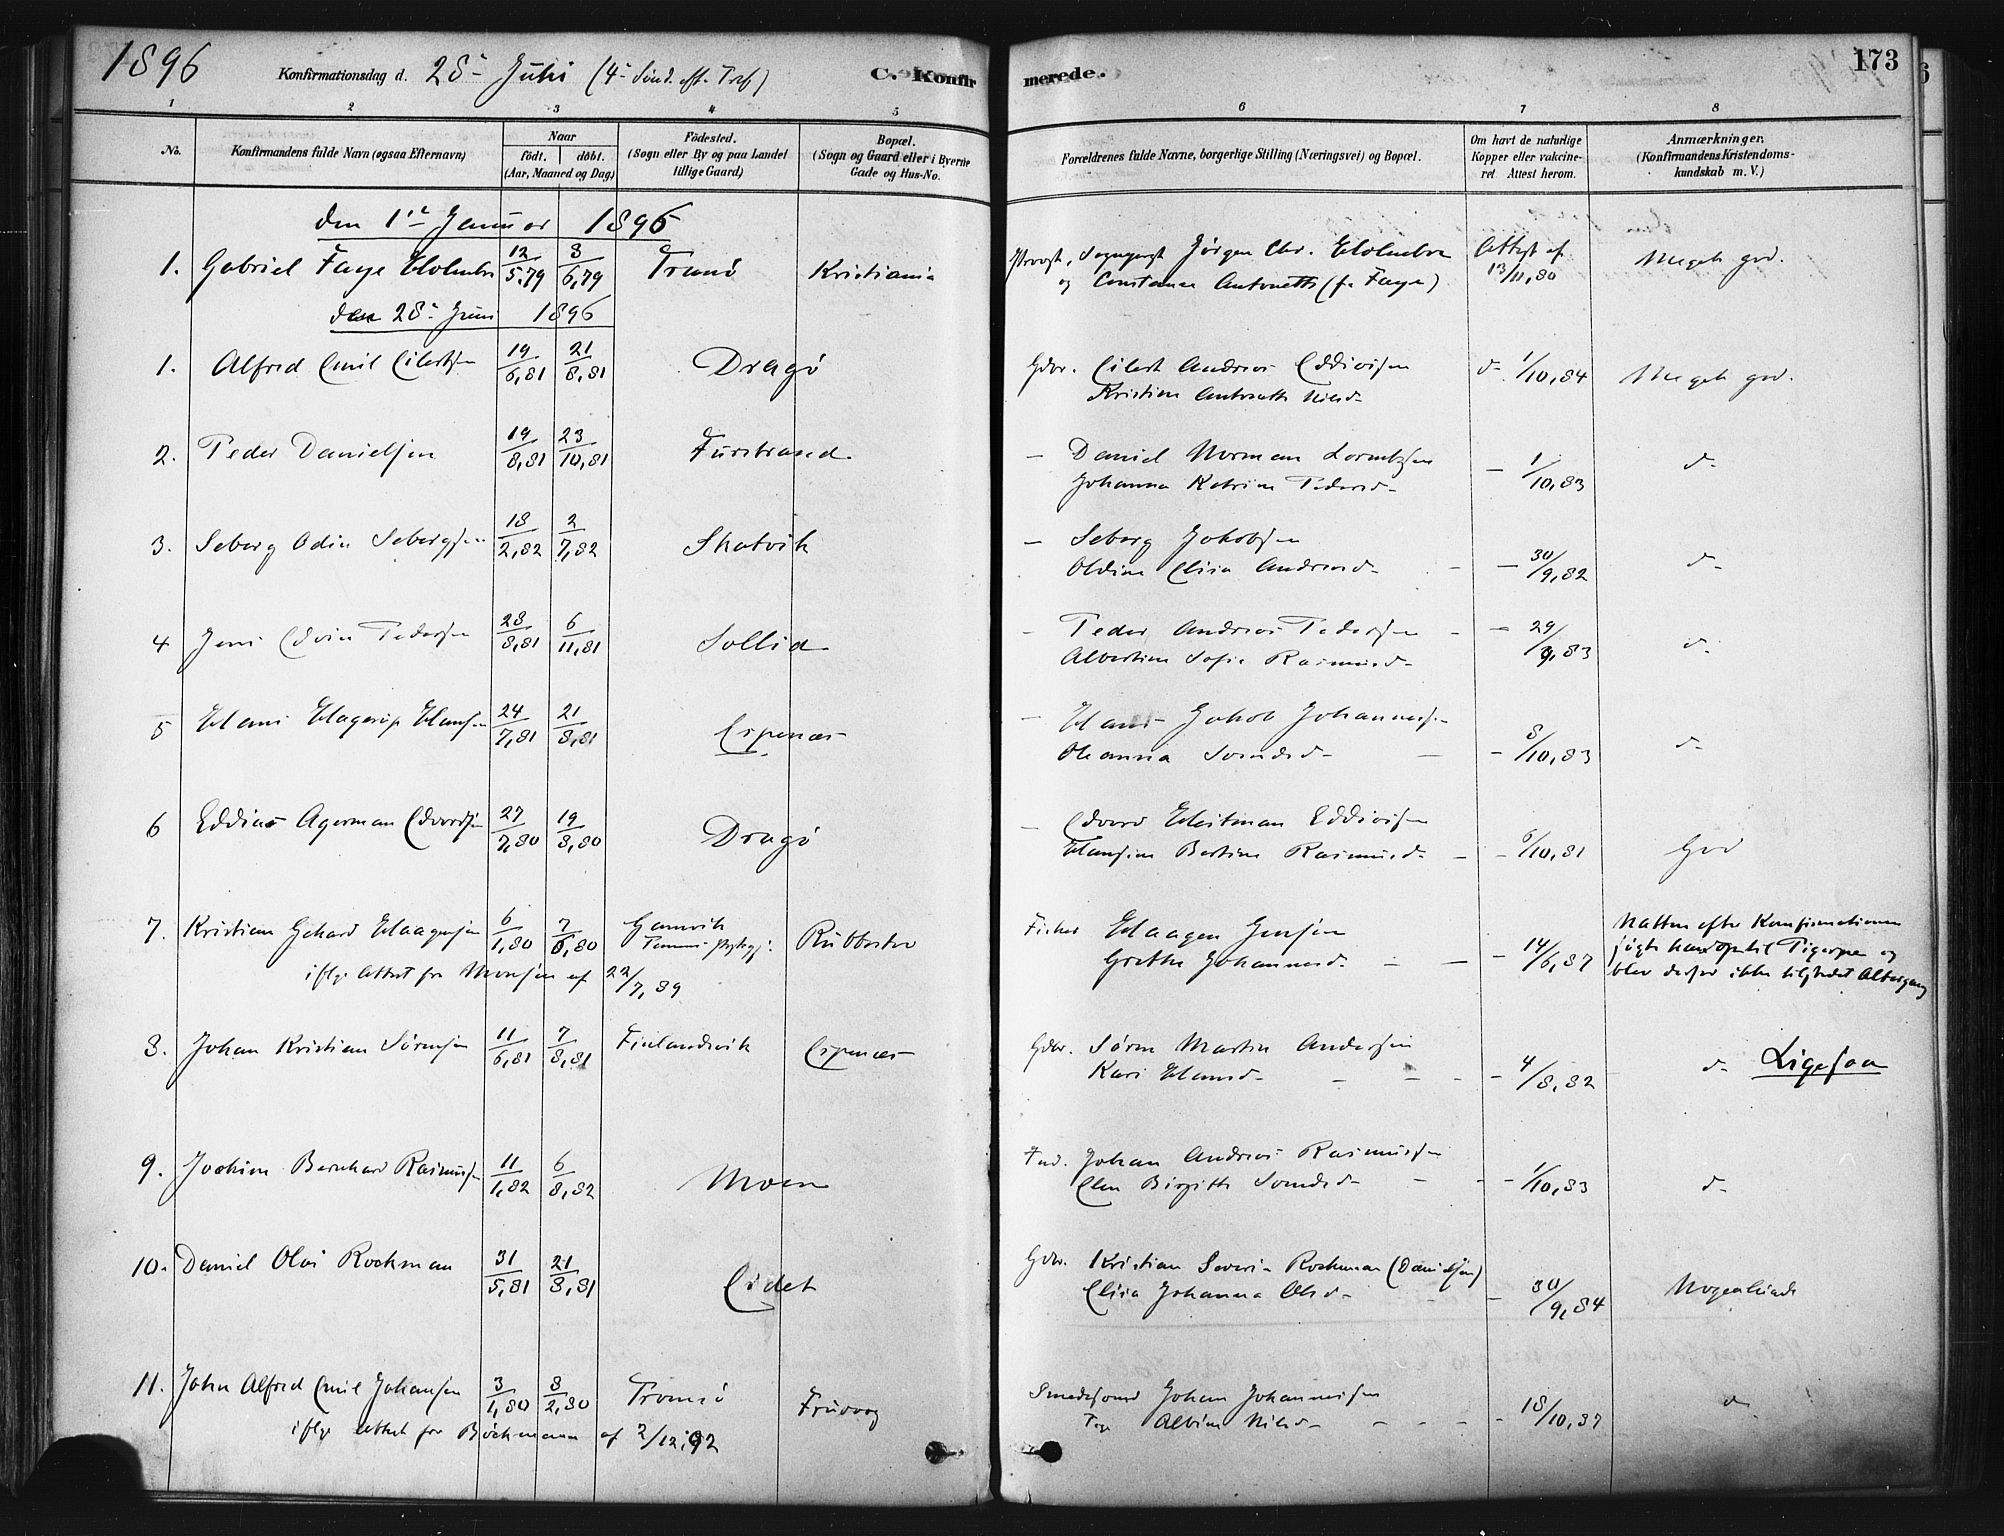 1896 Konfirmationsdag d. 28- Juni (4- Sønd. eft. Tref) C. Konfirmerede. 173
1 2 3 4 5 6 7 8
No.
Konfirmandens fulde Navn (ogsaa Efternavn)
Naar
födt. döbt.
(Aar, Maaned og Dag)
Födested.
(Sogn eller By og paa Landet
tillige Gaard)
Bopæl.
(Sogn og Gaard eller i Byerne
Gade og Hus-No.
Forældrenes fulde Navne, borgerlige Stilling (Næringsvei) og Bopæl.
Om havt de naturlige
Kopper eller vakcine-
ret. Attest herom.
Anmærkninger.
(Konfirmandens Kristendoms-
kundskab m. V.)
den 1ste Januar 1896
1. Gabriel Faye Holmboe 12/5.79 8/6,79 Tranö Kristiania Provst, Sogneprest Jørgen Chr. Holmboe Attest af 13/11,80 Meget god.
og Constance Antonette (f. Faye)
den 28- Juni 1896
1. Alfred Emil Eilertsen 19/6,81 21/8,81 Dragö Gdbr. Eilert Andreas Eddivsen d- 1/10,84 Meget god.
Kristine Antonette Nilsd-
2. Peder Danielsen 19/8,81 23/10,81 Furstrand - Daniel Norman Lorentzsen - 1/10,83 d-
Johanna Katrine Pedersd-
3. Seberg Odin Sebergsen 18/2,82 2/7,82 Skatvik - Seberg Jakobsen
Oldine Elisa Andreasd- - 30/9,82 d-
4 Jens Edvin Pedersen 28/8,81 6/11,81 Sollid - Peder Andreas Pedersen - 29/9,83 d-
Albertine Sofie Rasmusd-
5 Hans Hagerup Hansen 24/7,81 21/8,81 Espenæs - Hans Jakob Johanness-
Oleanna - 8/10,83 d-
6 Eddias Agerman Edvardsen 27/7,80 19/8,80 Dragö - Edvard Heitman Eddivsen
Hansine Bertine Rasmusd- - 6/10,81 God
7. Kristian Gehard Haagensen 6/1,80 7/6,80 Gamvik Rubbestad Fisker Haagen Jensen
Grethe Johannesd. - 14/6,87
ifølge Attest fra af 22/7,89
Natten efter Konfirmationen
og
blev derfor ikke tilstedet Altergang
8. Johan Kristian Sørensen 11/6,81 7/8,81 Finlandsvik Espenæs Gdbr. Søren Martin Andersen
Kari Hansd- - 4/8,82 d- Ligesaa
9. Jochim Bernhard Rasmussen 11/1,82 6/8,82 Moen Ind. Johan Andreas Rasmussen
Elen Birgitte - 1/10,83 d-
10. Daniel Olai Rockman 31/5,81 21/8,81 Eidet Gdbr. Kristian Severin Rockman (Danielsen)
Elisa Johanna Olsd- - 30/9,84 Nogenlunde
11. John Alfred Emil Johansen 3/1,80 8/2,80 Tromsö Fruvog Smedesvend Johan Johannessen
Alvine Nilsd- - 18/10,87 d-
ifølge Attest fra Böckmann af 2/12,92